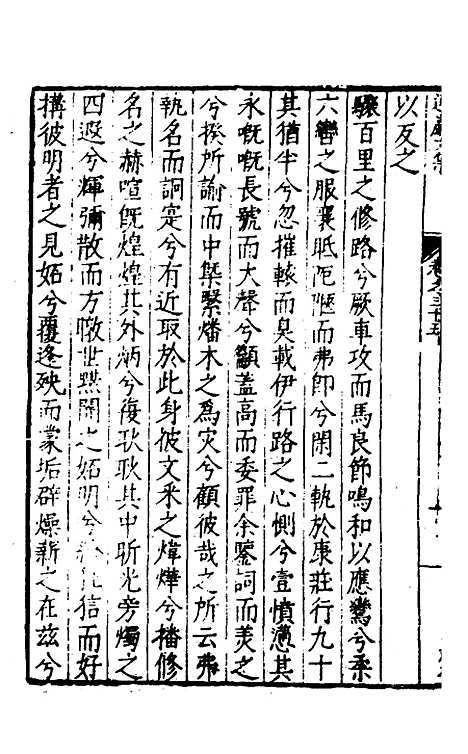 以反之
驤百里之修路兮厥車攻而馬良節鳴和以應鸞兮柔
六轡之服襄眂阨陋而弗卽兮閑二軌於康莊行九十
其猶半兮忽摧輗而臭載伊行路之心惻兮壹憤懣其
永嘅嘅長號而大聲兮籲蓋高而委罪余鑒詞而羙之
兮揆所諭而中𣠽燔木之為灾兮顧彼哉之所云弗
執名而詗寔兮有近取於此身彼文采之煒燁兮播修
名之赫喧旣煌煌其外炳兮復耿耿其中昕光旁燭之
四遐兮輝彌散而方暾世黙闇之妬明兮信而好
搆彼明者之見妬兮覆逢殃而蒙垢辟燥薪之在兹兮